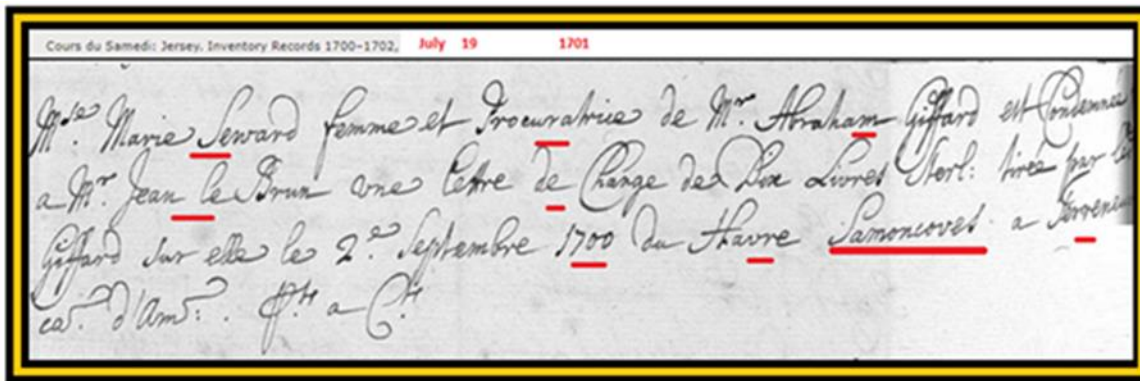 Cours du Samedi: Jersey. Inventory Records 1700-1702, July 19 1701
Mse Marie Seward femme et Procuratrice de Mr. Abraham Giffard est Condemnee
a Mr. Jean le Brun une lettre de Change de Dix Livres Sterl: tirée par le
Giffard sur elle le 2.e Septembre 1700 du Havre Samoncoves a Terrene
ca. d'Am: